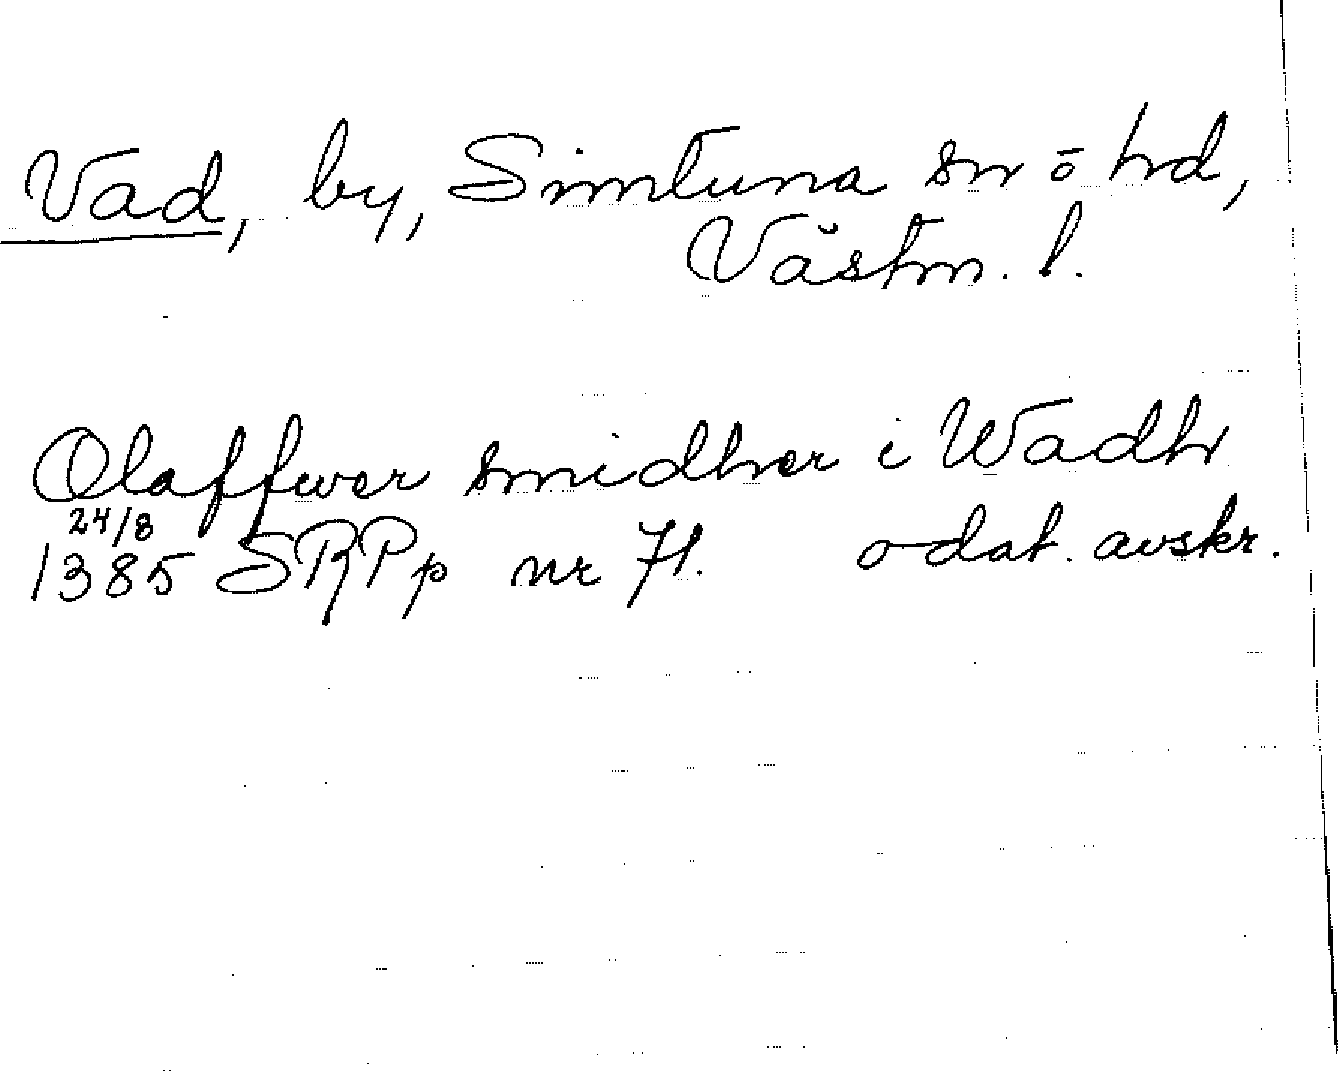 Vad, by, Simtuna sn o hd,
Västm. l.
Olaffwer smidher i Wadh
24/8
1385 SRPp nr 71. odat. avskr.